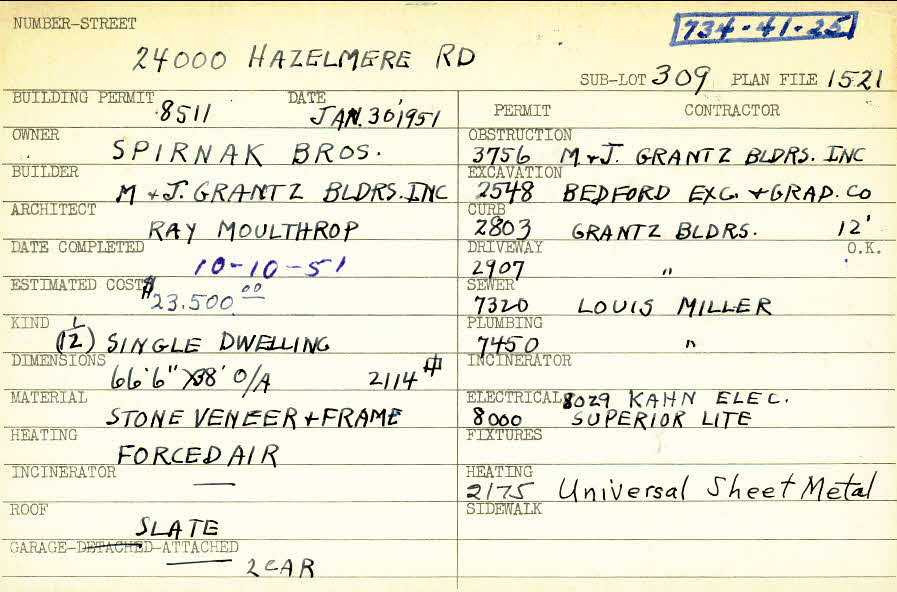 NUMBER-STREET
734-41-25
24000 HAZELMERE RD
SUB-LOT 309 PLAN FILE 1521
BUILDING PERMIT 8511 DATE JAN. 30, 1951
PERMIT CONTRACTOR
OWNER SPIRNAK BROS.
OBSTRUCTION 3756 M. & J. GRANTZ BLDRS. INC
BUILDER M & J. GRANTZ BLDRS. INC
EXCAVATION 2548 BEDFORD EXC. & GRAD. CO
ARCHITECT RAY MOULTHROP
CURB 2803 GRANTZ BLDRS. 12'
DATE COMPLETED 10-10-51
DRIVEWAY 2907 " O.K.
ESTIMATED COST $23.500 00
SEWER 7320 LOUIS MILLER
KIND (1 1/2) SINGLE DWELLING
PLUMBING 7450 "
DIMENSIONS 66'6" X 38' O/A 2114 #
INCINERATOR
MATERIAL STONE VENEER + FRAME
ELECTRICAL 8029 KAHN ELEC.
8000 SUPERIOR LITE
HEATING FORCED AIR
FIXTURES
INCINERATOR —
HEATING 2175 Universal Sheet Metal
ROOF SLATE
SIDEWALK
GARAGE-DETACHED-ATTACHED
2 CAR